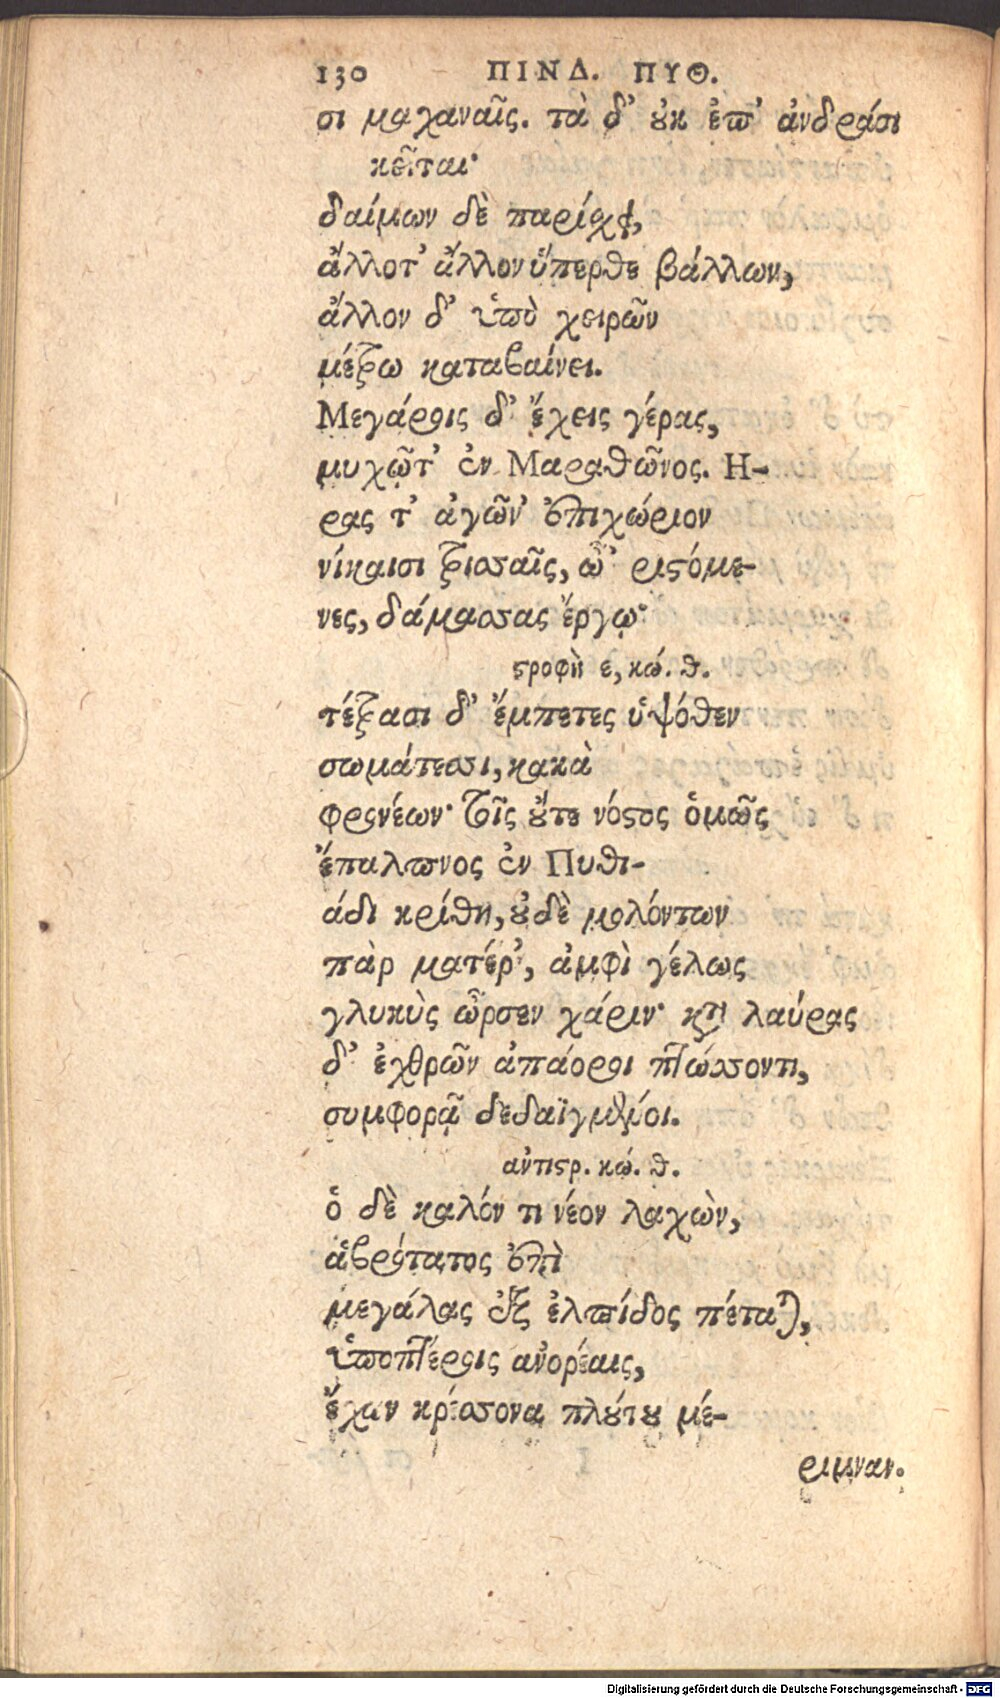 130 ΠΙΝΔ. ΠΥΘ.
σι μαχαναῖς. τὰ δ' οὐκ ἐπ' ἀνδράσι
κεῖται·
δαίμων δὲ παρίσχει,
ἄλλοτ' ἄλλον ὕπερθε βάλλων,
ἄλλον δ' ὑπὸ χειρῶν
μέτρω καταβαίνει.
Μεγάροις δ' ἔχεις γέρας,
μυχῷτ' ἐν Μαραθῶνος. Η-
ρας τ' ἀγῶν' ἐπιχώριον
νίκαισι τρισσαῖς, ὦ' ριστόμε-
νες, δάμασσας ἔργῳ·
στροφὴ ε, κώ. θ.
τέτρασι δ' ἔμπετες ὑψόθεν
σωμάτεσσι, κακὰ
φρονέων· τοῖς οὔτε νόστος ὁμῶς
ἔπαλπνος ἐν Πυθι-
άδι κρίθη, οὐδὲ μολόντων
πὰρ ματέρ', ἀμφὶ γέλως
γλυκὺς ὦρσεν χάριν· κατὰ λαύρας
δ' ἐχθρῶν ἀπάοροι πτώσσοντι,
συμφορᾷ δεδαϊγμένοι.
ἀντιστρ. κώ. θ.
ὁ δὲ καλόν τι νέον λαχὼν,
ἁβρότατος ἐπὶ
μεγάλας ἐξ ἐλπίδος πέταται,
ὑποπτέροις ἀνορέαις,
ἔχων κρέσσονα πλούτου μέ-
ριμναν.
Digitalisierung gefördert durch die Deutsche Forschungsgemeinschaft - DFG